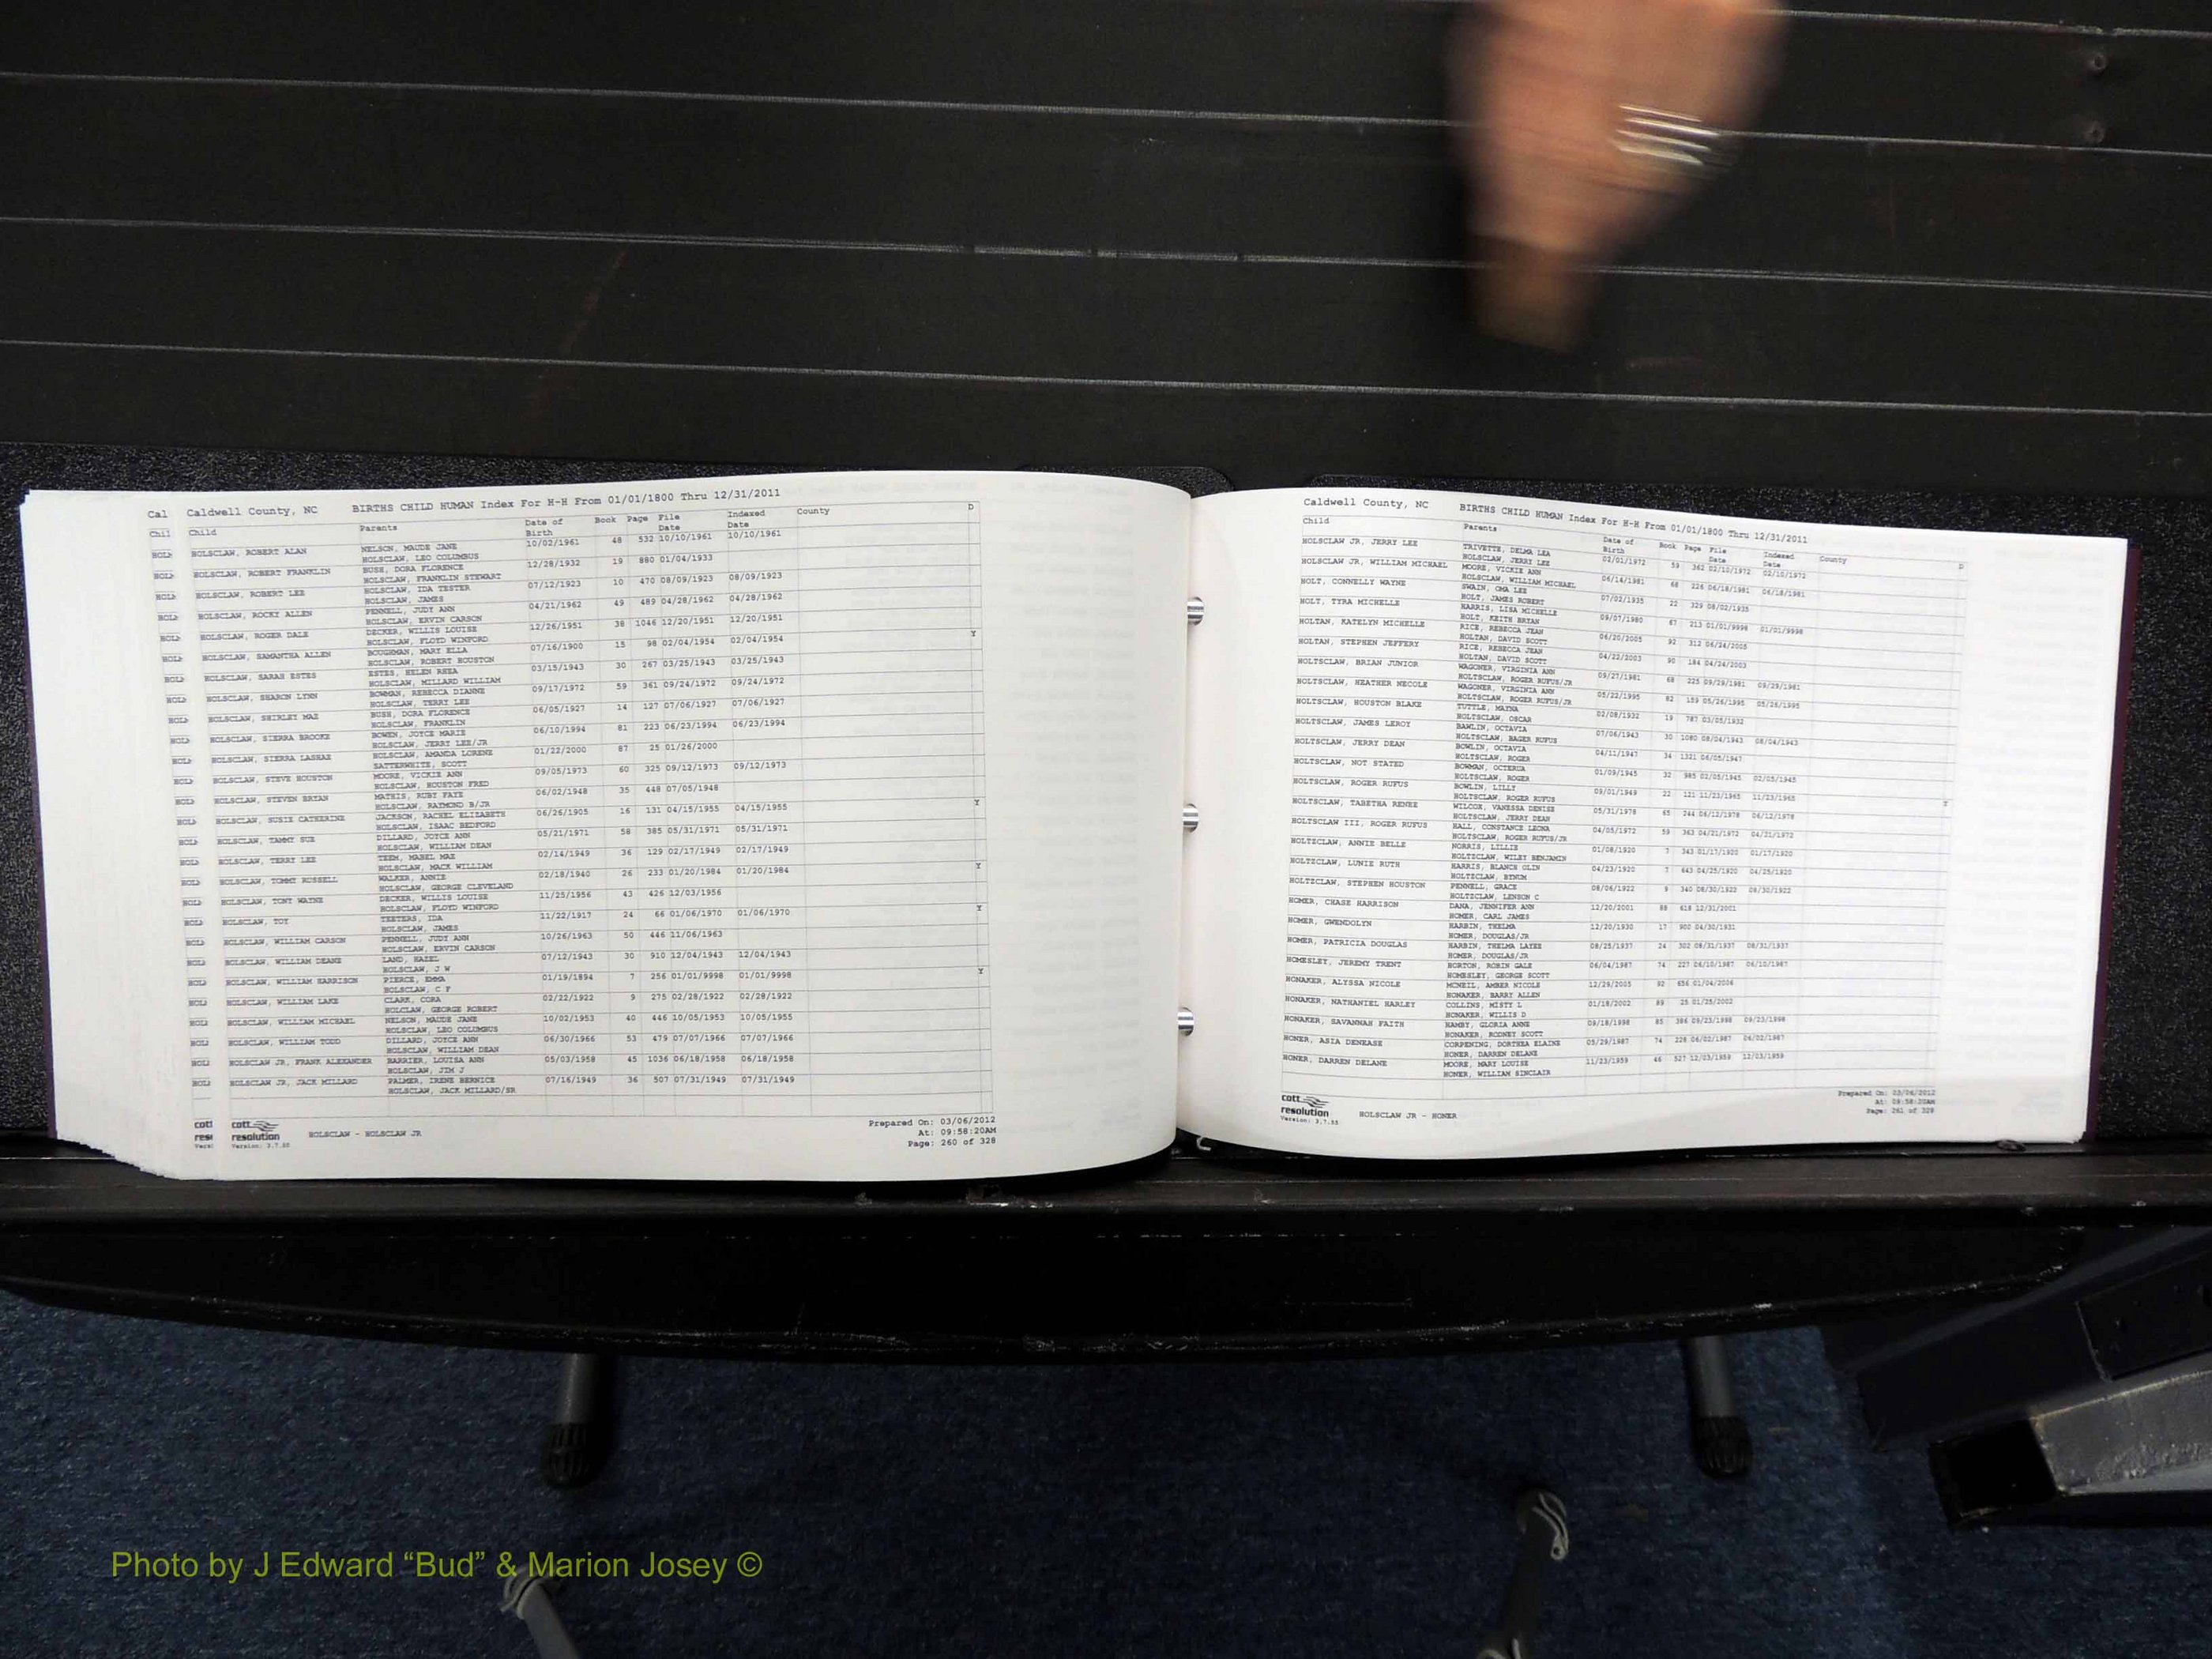 Caldwell County, NC BIRTHS CHILD HUMAN Index For H-H From 01/01/1800 Thru 12/31/2011
Child Parents Date of Birth Book Page File Date Indexed Date County D
HOLSCLAW, ROBERT ALAN NELSON, MAUDE JANE 10/02/1961 48 532 10/10/1961 10/10/1961
HOLSCLAW, LEO COLUMBUS
HOLSCLAW, ROBERT FRANKLIN BUSH, DORA FLORENCE 12/28/1932 19 880 01/04/1933
HOLSCLAW, FRANKLIN STEWART
HOLSCLAW, ROBERT LEE HOLSCLAW, IDA TESTER 07/12/1923 10 470 08/09/1923 08/09/1923
HOLSCLAW, JAMES
HOLSCLAW, ROCKY ALLEN PENNELL, JUDY ANN 04/21/1962 49 489 04/28/1962 04/28/1962
HOLSCLAW, ERVIN CARSON
HOLSCLAW, ROGER DALE DECKER, WILLIS LOUISE 12/26/1951 38 1046 12/20/1951 12/20/1951
HOLSCLAW, FLOYD WINFORD
HOLSCLAW, SAMANTHA ALLEN BOUGHMAN, MARY ELLA 07/16/1900 15 98 02/04/1954 02/04/1954 Y
HOLSCLAW, ROBERT HOUSTON
HOLSCLAW, SARAH ESTES ESTES, HELEN RHEA 03/15/1943 30 267 03/25/1943 03/25/1943
HOLSCLAW, MILLARD WILLIAM
HOLSCLAW, SHARON LYNN BOWMAN, REBECCA DIANNE 09/17/1972 59 361 09/24/1972 09/24/1972
HOLSCLAW, TERRY LEE
HOLSCLAW, SHIRLEY MAE BUSH, DORA FLORENCE 06/05/1927 14 127 07/06/1927 07/06/1927
HOLSCLAW, FRANKLIN
HOLSCLAW, SIERRA BROOKE BOWEN, JOYCE MARIE 06/10/1994 81 223 06/23/1994 06/23/1994
HOLSCLAW, JERRY LEE/JR
HOLSCLAW, SIERRA LASHAE HOLSCLAW, AMANDA LORENE 01/22/2000 87 25 01/26/2000
SATTERWHITE, SCOTT
HOLSCLAW, STEVE HOUSTON MOORE, VICKIE ANN 09/05/1973 60 325 09/12/1973 09/12/1973
HOLSCLAW, HOUSTON FRED
HOLSCLAW, STEVEN BRYAN MATHIS, RUBY FAYE 06/02/1948 35 448 07/05/1948
HOLSCLAW, RAYMOND B/JR
HOLSCLAW, SUSIE CATHERINE JACKSON, RACHEL ELIZABETH 06/26/1905 16 131 04/15/1955 04/15/1955 Y
HOLSCLAW, ISAAC BEDFORD
HOLSCLAW, TAMMY SUE DILLARD, JOYCE ANN 05/21/1971 58 385 05/31/1971 05/31/1971
HOLSCLAW, WILLIAM DEAN
HOLSCLAW, TERRY LEE TEEM, MABEL MAE 02/14/1949 36 129 02/17/1949 02/17/1949
HOLSCLAW, MACK WILLIAM
HOLSCLAW, TOMMY RUSSELL WALKER, ANNIE 02/18/1940 26 233 01/20/1984 01/20/1984 Y
HOLSCLAW, GEORGE CLEVELAND
HOLSCLAW, TONY WAYNE DECKER, WILLIS LOUISE 11/25/1956 43 426 12/03/1956
HOLSCLAW, FLOYD WINFORD
HOLSCLAW, TOY TEETERS, IDA 11/22/1917 24 66 01/06/1970 01/06/1970 Y
HOLSCLAW, JAMES
HOLSCLAW, WILLIAM CARSON PENNELL, JUDY ANN 10/26/1963 50 446 11/06/1963
HOLSCLAW, ERVIN CARSON
HOLSCLAW, WILLIAM DEANE LAND, HAZEL 07/12/1943 30 910 12/04/1943 12/04/1943
HOLSCLAW, J W
HOLSCLAW, WILLIAM HARRISON PIERCE, EMMA 01/19/1894 7 256 01/01/9998 01/01/9998 Y
HOLSCLAW, C F
HOLSCLAW, WILLIAM LAKE CLARK, CORA 02/22/1922 9 275 02/28/1922 02/28/1922
HOLCLAW, GEORGE ROBERT
HOLSCLAW, WILLIAM MICHAEL NELSON, MAUDE JANE 10/02/1953 40 446 10/05/1953 10/05/1955
HOLSCLAW, LEO COLUMBUS
HOLSCLAW, WILLIAM TODD DILLARD, JOYCE ANN 06/30/1966 53 479 07/07/1966 07/07/1966
HOLSCLAW, WILLIAM DEAN
HOLSCLAW JR, FRANK ALEXANDER BARRIER, LOUISA ANN 05/03/1958 45 1036 06/18/1958 06/18/1958
HOLSCLAW, JIM J
HOLSCLAW JR, JACK MILLARD PALMER, IRENE BERNICE 07/16/1949 36 507 07/31/1949 07/31/1949
HOLSCLAW, JACK MILLARD/SR
cott resolution Version: 3.7.55 HOLSCLAW - HOLSCLAW JR
Prepared On: 03/06/2012
At: 09:58:20AM
Page: 260 of 328
Caldwell County, NC BIRTHS CHILD HUMAN Index For H-H From 01/01/1800 Thru 12/31/2011
Child Parents Date of Birth Book Page File Date Indexed Date County D
HOLSCLAW JR, JERRY LEE TRIVETTE, DELMA LEA 02/01/1972 59 362 02/10/1972 02/10/1972
HOLSCLAW, JERRY LEE
HOLSCLAW JR, WILLIAM MICHAEL MOORE, VICKIE ANN 06/14/1981 68 226 06/18/1981 06/18/1981
HOLSCLAW, WILLIAM MICHAEL
HOLT, CONNELLY WAYNE SWAIN, OMA LEE 07/02/1935 22 329 08/02/1935
HOLT, JAMES ROBERT
HOLT, TYRA MICHELLE HARRIS, LISA MICHELLE 09/07/1980 67 213 01/01/9998 01/01/9998
HOLT, KEITH BRYAN
HOLTAN, KATELYN MICHELLE RICE, REBECCA JEAN 06/20/2005 92 312 06/24/2005
HOLTAN, DAVID SCOTT
HOLTAN, STEPHEN JEFFERY RICE, REBECCA JEAN 04/22/2003 90 184 04/24/2003
HOLTAN, DAVID SCOTT
HOLTSCLAW, BRIAN JUNIOR WAGONER, VIRGINIA ANN 09/27/1981 68 225 09/29/1981 09/29/1981
HOLTSCLAW, ROGER RUFUS/JR
HOLTSCLAW, HEATHER NECOLE WAGONER, VIRGINIA ANN 05/22/1995 82 159 05/26/1995 05/26/1995
HOLTSCLAW, ROGER RUFUS/JR
HOLTSCLAW, HOUSTON BLAKE TUTTLE, MAYNA 02/08/1932 19 787 03/05/1932
HOLTSCLAW, OSCAR
HOLTSCLAW, JAMES LEROY BAWLIN, OCTAVIA 07/06/1943 30 1080 08/04/1943 08/04/1943
HOLTSCLAW, BAGER RUFUS
HOLTSCLAW, JERRY DEAN BOWLIN, OCTAVIA 04/11/1947 34 1321 06/05/1947
HOLTSCLAW, ROGER
HOLTSCLAW, NOT STATED BOWMAN, OCTERUA 01/09/1945 32 985 02/05/1945 02/05/1945
HOLTSCLAW, ROGER
HOLTSCLAW, ROGER RUFUS BOWLIN, LILLY 09/01/1949 22 121 11/23/1965 11/23/1965 Y
HOLTSCLAW, ROGER RUFUS
HOLTSCLAW, TABETHA RENEE WILCOX, VANESSA DENISE 05/31/1978 65 244 06/12/1978 06/12/1978
HOLTSCLAW, JERRY DEAN
HOLTSCLAW III, ROGER RUFUS HALL, CONSTANCE LEONA 04/05/1972 59 363 04/21/1972 04/21/1972
HOLTSCLAW, ROGER RUFUS/JR
HOLTZCLAW, ANNIE BELLE NORRIS, LILLIE 01/08/1920 7 343 01/17/1920 01/17/1920
HOLTZCLAW, WILEY BENJAMIN
HOLTZCLAW, LUNIE RUTH HARRIS, BLANCH OLIN 04/23/1920 7 643 04/25/1920 04/25/1920
HOLTZCLAW, BYNUM
HOLTZCLAW, STEPHEN HOUSTON PENNELL, GRACE 08/06/1922 9 340 08/30/1922 08/30/1922
HOLTZCLAW, LENSON C
HOMER, CHASE HARRISON DANA, JENNIFER ANN 12/20/2001 88 618 12/31/2001
HOMER, CARL JAMES
HOMER, GWENDOLYN HARBIN, THELMA 12/20/1930 17 900 04/30/1931
HOMER, DOUGLAS/JR
HOMER, PATRICIA DOUGLAS HARBIN, THELMA LAYEE 08/25/1937 24 302 08/31/1937 08/31/1937
HOMER, DOUGLAS/JR
HOMESLEY, JEREMY TRENT HORTON, ROBIN GALE 06/04/1987 74 227 06/10/1987 06/10/1987
HOMESLEY, GEORGE SCOTT
HONAKER, ALYSSA NICOLE MCNEIL, AMBER NICOLE 12/29/2005 92 656 01/04/2006
HONAKER, BARRY ALLEN
HONAKER, NATHANIEL HARLEY COLLINS, MISTY L 01/18/2002 89 25 01/25/2002
HONAKER, WILLIS D
HONAKER, SAVANNAH FAITH HAMBY, GLORIA ANNE 09/18/1998 85 386 09/23/1998 09/23/1998
HONAKER, RODNEY SCOTT
HONER, ASIA DENEASE CORPENING, DORTHEA ELAINE 05/29/1987 74 228 06/02/1987 06/02/1987
HONER, DARREN DELANE
HONER, DARREN DELANE MOORE, MARY LOUISE 11/23/1959 46 527 12/03/1959 12/03/1959
HONER, WILLIAM SINCLAIR
cott resolution Version: 3.7.55 HOLSCLAW JR - HONER
Prepared On: 03/06/2012
At: 09:58:20AM
Page: 261 of 328
Photo by J Edward “Bud” & Marion Josey ©